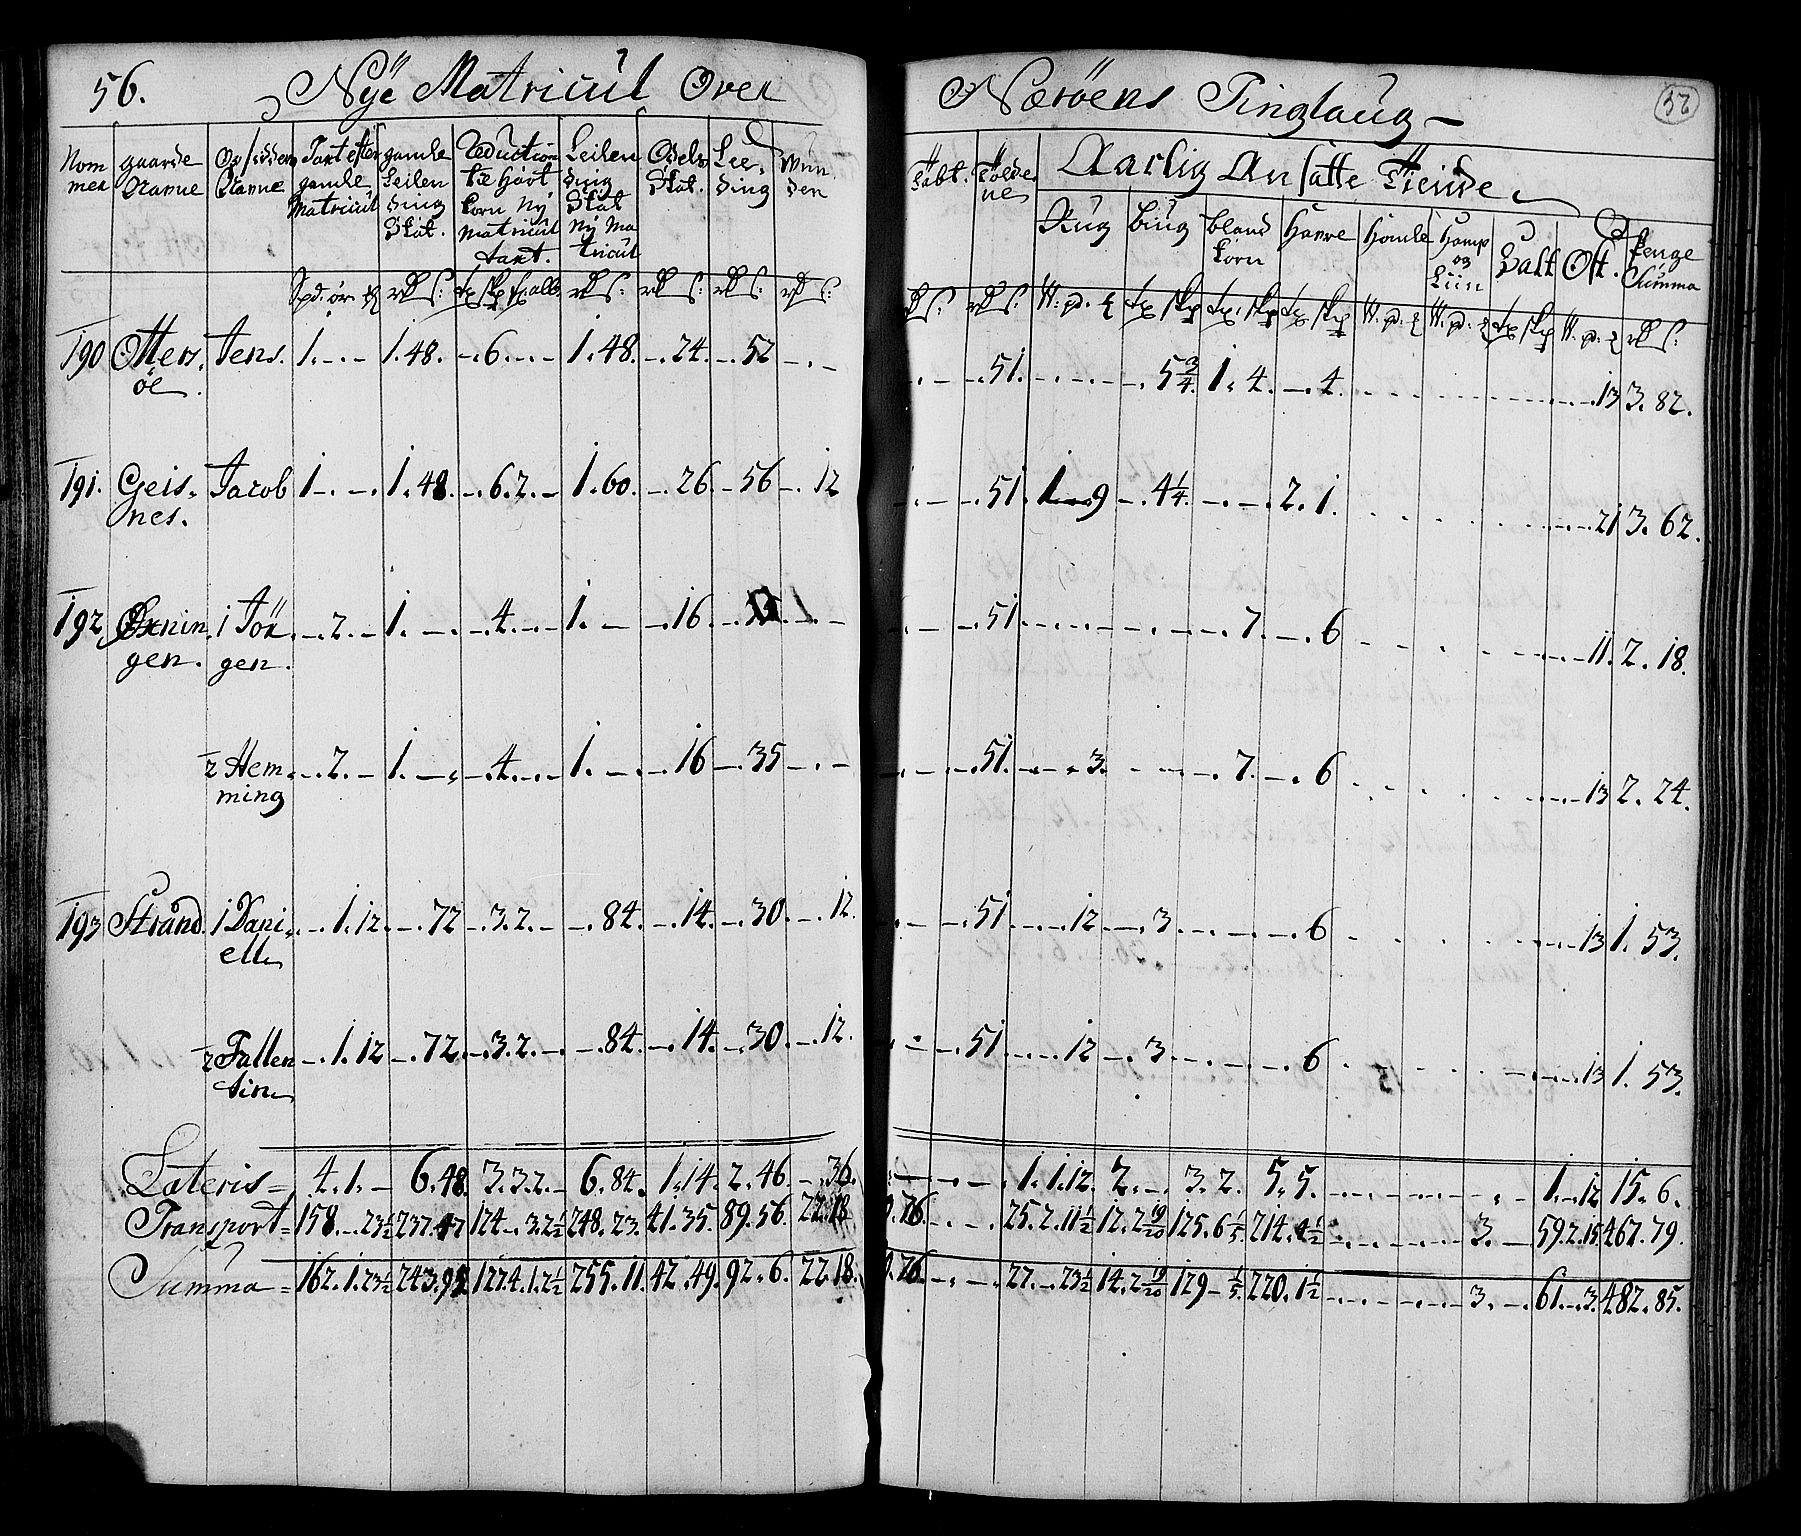 56. Nÿe Matricül Over Næröens Tinglaug 57
Nom mer | gaarde Navne | Op sidder Navne | Taxt efter gamle Matricul | gamle Leilen ding Skat. | Reduction til Hart korn Ny Matricul taxt. | Leilen ding Skat Ny Ma tricul | Odels Skat. | Lee- ding | | Aarlig Ansatte Tiende
Rüg | Büg | bland korn | Havre | Homle | Hamp og Liin | Salt | Ost. | Penge Summa
190 Otters. Jens. 1. - . - 1. 48. - . 6. - . - 1. 48. - . 24. - . 52 - . - | - . 51. - . - . - - . 5 3/4. 1. 4. - . 4. 13 3. 82.
öe.
191. Geis. Jacob 1 - . - . 1. 48. - . 6. 2. - 1. 60. - . 26. - 56 - . 12 | - . 51. 1 - 9 - . 4 1/4. - . - . 2. 1. 21 3. 62.
nes.
192 Øxnin. 1 Jör - . 2. - 1. - . - . 4. - . - 1. - . - . 16 - . - | - . 51. - . 7. - . 6 11. 2. 18.
gen. gen.
2 Hem - . 2. - 1. - . - . 4. - . - 1. - . - . 16 - . 35 - . - | - . 51. - . - . 3. - . 7. - . 6 13 2. 24.
ming
193 Strand. 1 Dani - . 1. 12. - . 72 - . 3. 2. - - . 84. - . 14. - . 30. - . 12. | - . 51 - . - 12 - . 3 - . - . - . 6 13 1. 53.
ell
2 Fallen - . 1. 12 - . 72. - . 3. 2. - - . 84. - . 14. - . 30. - . 12. | - . 51 - . - 12 - . 3 - . - . - . 6 13 1. 53.
tin
Lateris - 4. 1. - 6. 48. 3. 3. 2. - 6. 84. 1. 14. 2. 46. - . 36. | - . - 1. 1. 12. 2. - . 3. 2. 5. 5. 1. - 12 15. 6.
Transport = 158. - . 23 1/2 237. 47 124 - . 3. 2 1/2 248. 23. 41. 35. 89. 56. 22. 18 | 76. - . - 25. 2. 11 1/2 12. 2 19/20 125. 6 1/5 214. 4 1/2 3. - 59. 2. 15 467. 79.
Summa = 162. 1. 23 1/2 243. 95 127. 4. 1. 2 1/2 255. 11. 42. 49. 92. 6. 22. 18. | 76. - . - 27. - . 23 1/2 14. 2 19/20 129 - 1/5 220. 1 1/2 3. - 61. - 3. 482. 85.